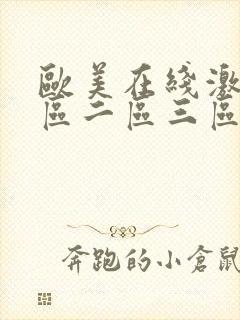 歐美在綫激
區二區三區
奔跑的小倉鼠